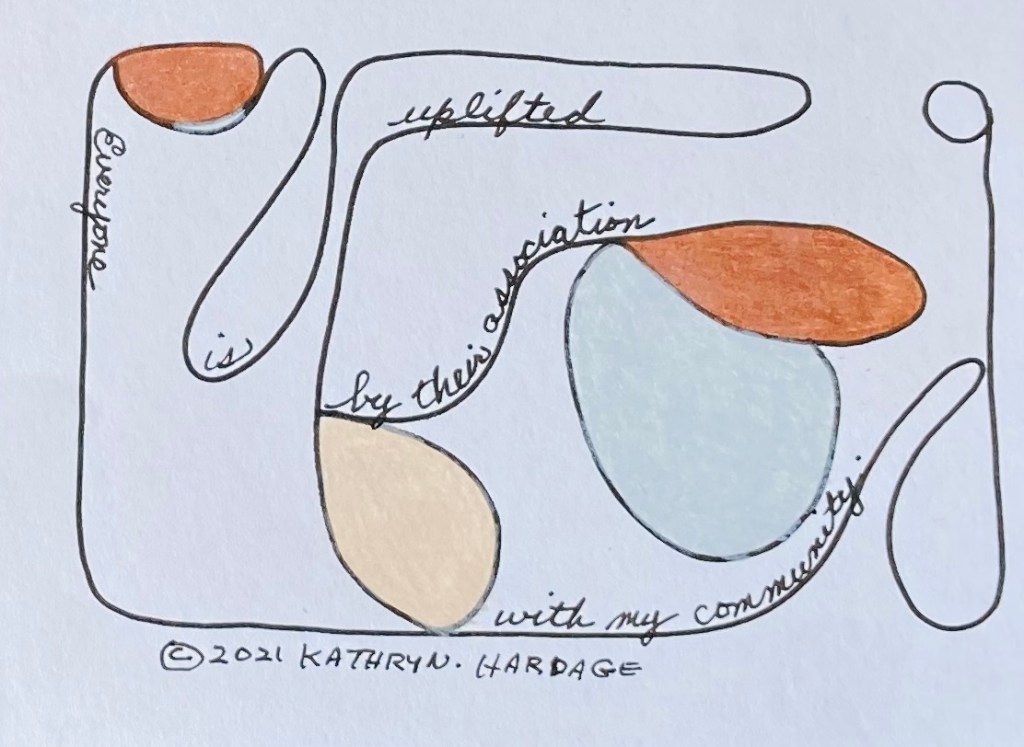 Everyone
is
uplifted
by their association
with my community.
© 2021 KATHRYN. HARDAGE